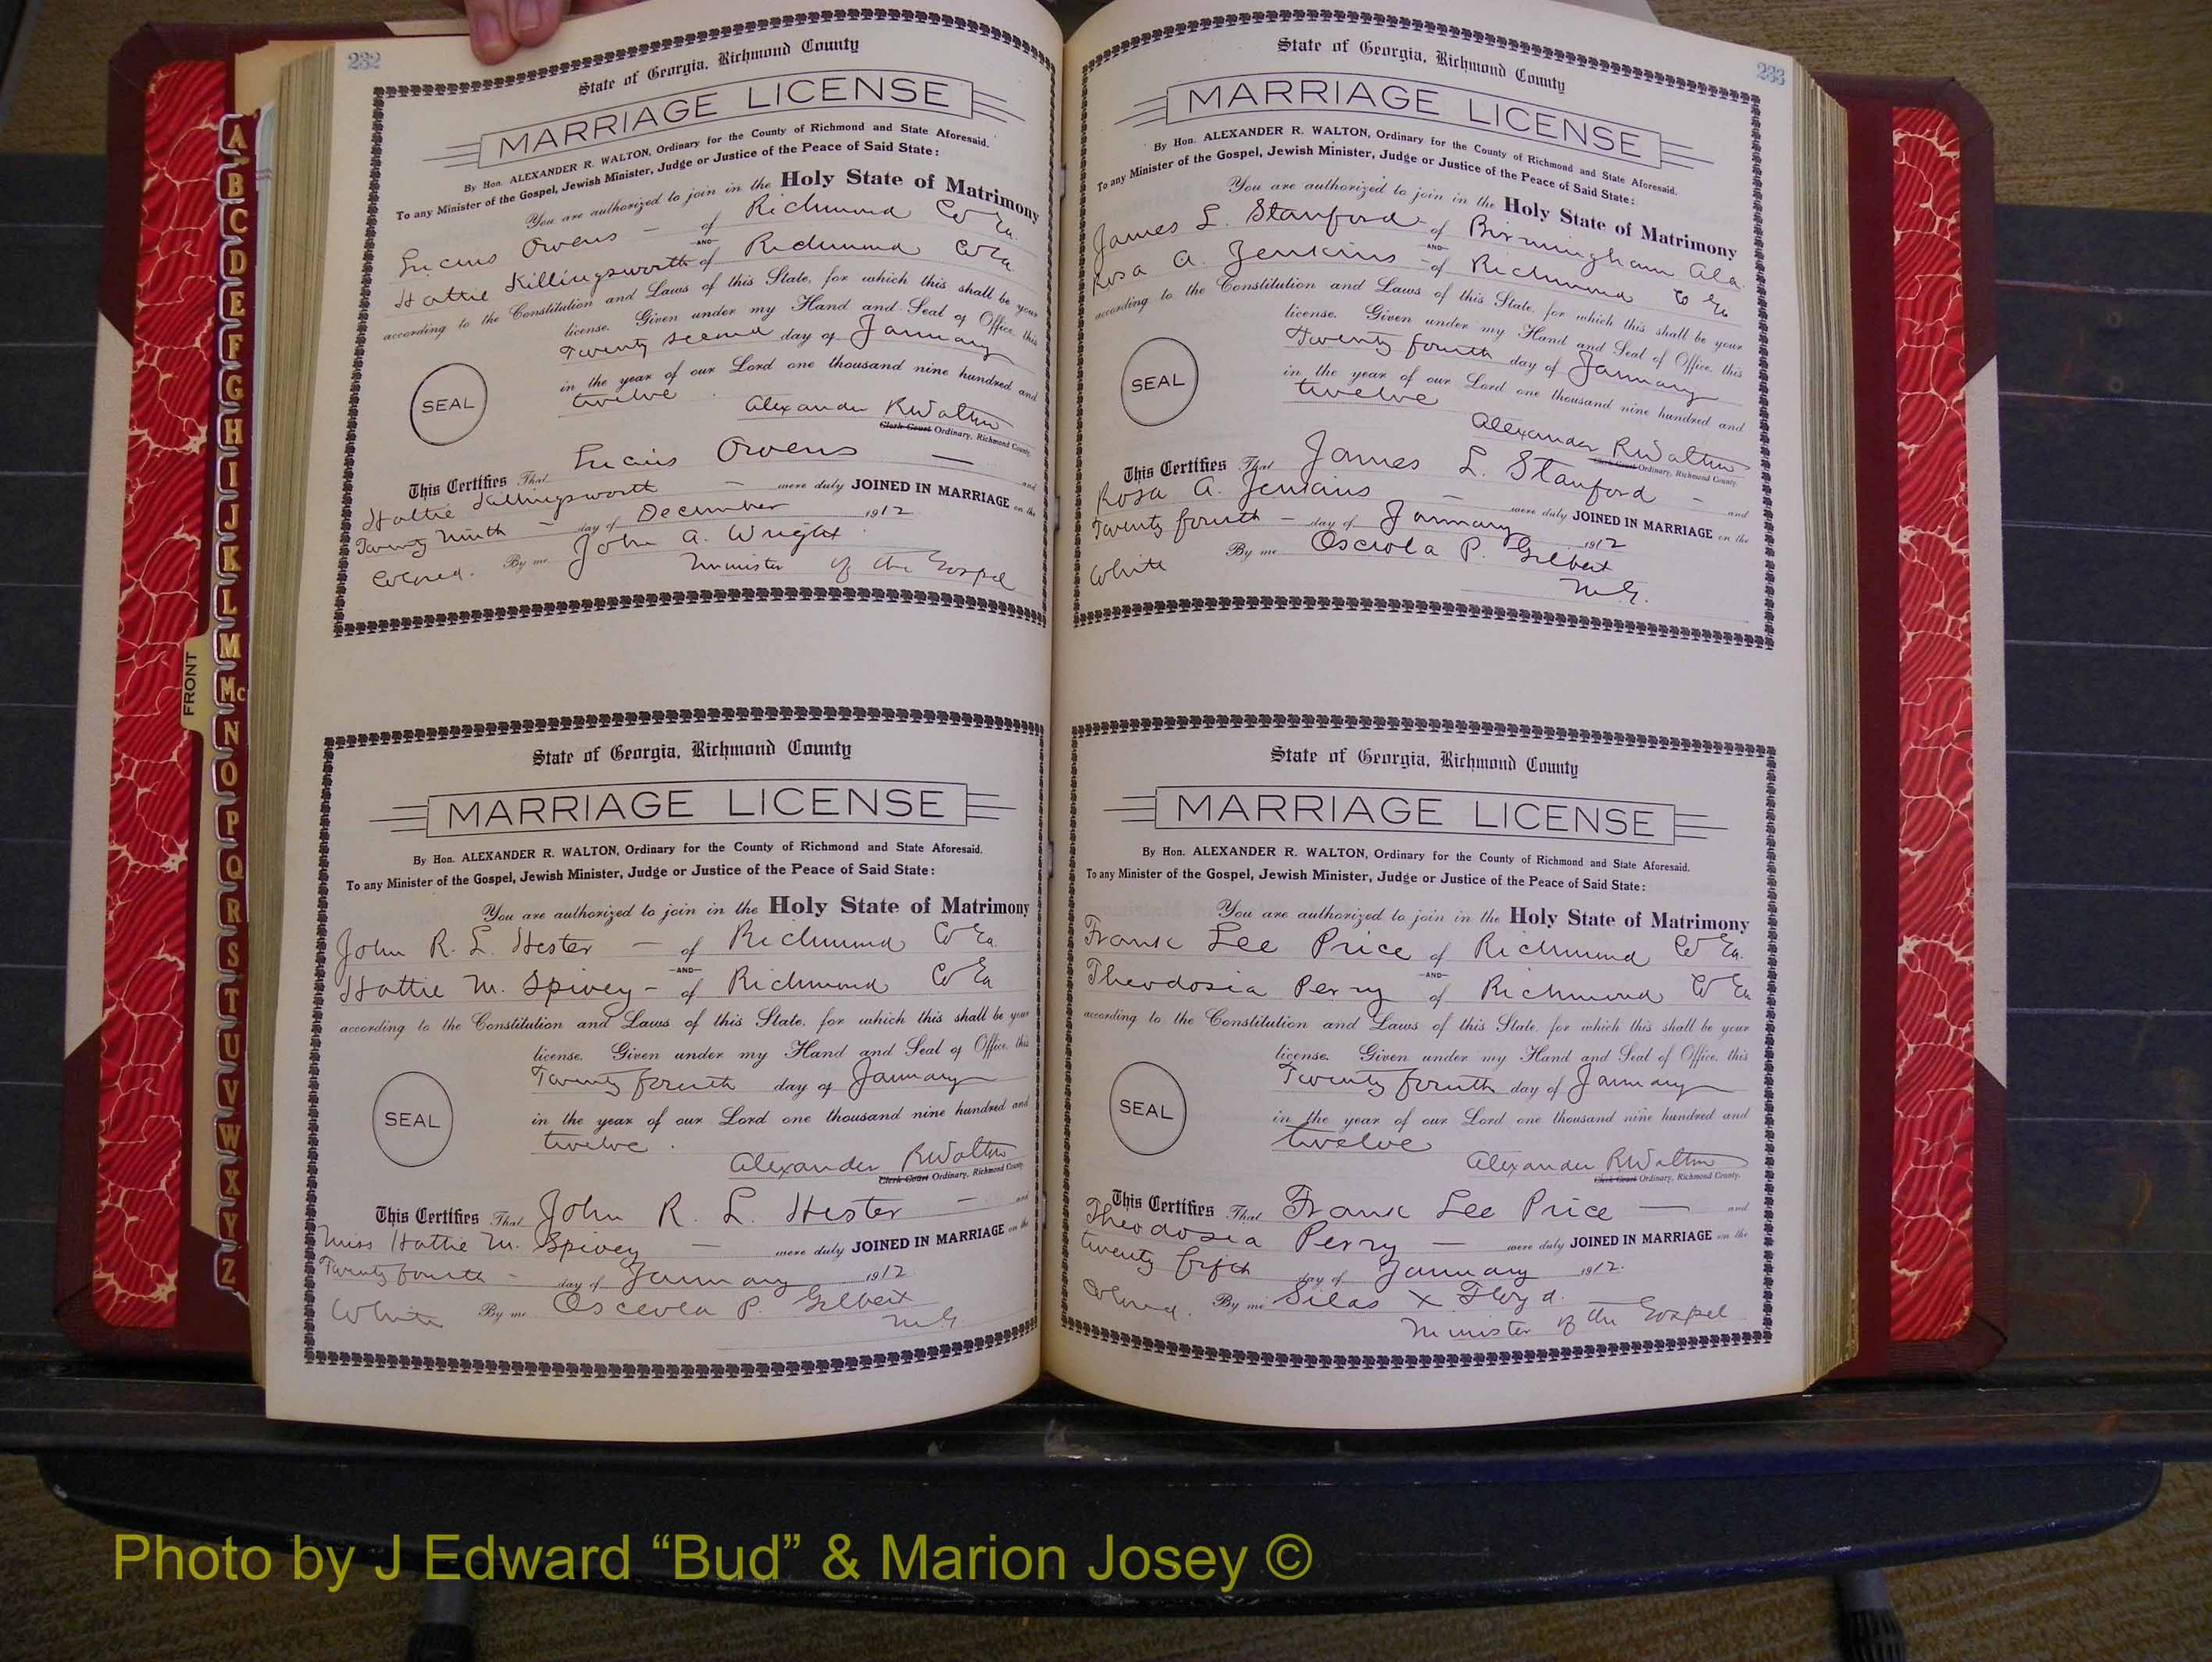 232
State of Georgia, Richmond County
MARRIAGE LICENSE
By Hon. ALEXANDER R. WALTON, Ordinary for the County of Richmond and State Aforesaid.
To any Minister of the Gospel, Jewish Minister, Judge or Justice of the Peace of Said State:
You are authorized to join in the Holy State of Matrimony
Lucius Owens - of Richmond Co Ga.
-AND-
Hattie Killingsworth of Richmond Co Ga
according to the Constitution and Laws of this State, for which this shall be your
license. Given under my Hand and Seal of Office, this
Twenty second day of January
in the year of our Lord one thousand nine hundred and
twelve
SEAL
Alexander R Walton
Clerk Court Ordinary, Richmond County.
This Certifies That Lucius Owens — and
Hattie Killingsworth - were duly JOINED IN MARRIAGE on the
Twenty Ninth - day of December 1912
Colored. By me John A. Wright
Minister of the Gospel
State of Georgia, Richmond County
MARRIAGE LICENSE
By Hon. ALEXANDER R. WALTON, Ordinary for the County of Richmond and State Aforesaid.
To any Minister of the Gospel, Jewish Minister, Judge or Justice of the Peace of Said State:
You are authorized to join in the Holy State of Matrimony
John R. L. Hester - of Richmond Co Ga.
-AND-
Hattie M. Spivey - of Richmond Co Ga
according to the Constitution and Laws of this State, for which this shall be your
license. Given under my Hand and Seal of Office, this
Twenty fourth day of January
in the year of our Lord one thousand nine hundred and
twelve.
SEAL
Alexander R Walton
Clerk Court Ordinary, Richmond County.
This Certifies That John R. L. Hester - and
Miss Hattie M. Spivey - were duly JOINED IN MARRIAGE on the
Twenty fourth - day of January 1912
White By me Osceola P. Gilbert
M.G.
233
State of Georgia, Richmond County
MARRIAGE LICENSE
By Hon. ALEXANDER R. WALTON, Ordinary for the County of Richmond and State Aforesaid.
To any Minister of the Gospel, Jewish Minister, Judge or Justice of the Peace of Said State:
You are authorized to join in the Holy State of Matrimony
James L. Stanford - of Birmingham Ala.
-AND-
Rosa A. Jenkins - of Richmond Co Ga
according to the Constitution and Laws of this State, for which this shall be your
license. Given under my Hand and Seal of Office, this
Twenty fourth day of January
in the year of our Lord one thousand nine hundred and
twelve
SEAL
Alexander R Walton
Clerk Court Ordinary, Richmond County.
This Certifies That James L. Stanford - and
Rosa A. Jenkins - were duly JOINED IN MARRIAGE on the
Twenty fourth - day of January 1912
White By me Osceola P. Gilbert
M.G.
State of Georgia, Richmond County
MARRIAGE LICENSE
By Hon. ALEXANDER R. WALTON, Ordinary for the County of Richmond and State Aforesaid.
To any Minister of the Gospel, Jewish Minister, Judge or Justice of the Peace of Said State:
You are authorized to join in the Holy State of Matrimony
Frank Lee Price of Richmond Co Ga.
-AND-
Theodosia Perry of Richmond Co Ga
according to the Constitution and Laws of this State, for which this shall be your
license. Given under my Hand and Seal of Office, this
Twenty fourth day of January
in the year of our Lord one thousand nine hundred and
twelve
SEAL
Alexander R Walton
Clerk Court Ordinary, Richmond County.
This Certifies That Frank Lee Price — and
Theodosia Perry — were duly JOINED IN MARRIAGE on the
twenty fifth day of January 1912.
Colored. By me Silas X Floyd.
Minister of the Gospel
FRONT
A
B
C
D
E
F
G
H
I
J
K
L
M
Mc
N
O
P
Q
R
S
T
U
V
W
X
Y
Z
Photo by J Edward “Bud” & Marion Josey ©